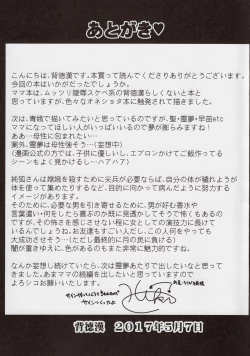 あとがき♡
こんにちは、背徳漢です。本買って読んでくださりありがとうございます。
今回の本はいかがだったでしょうか。
ママ本は、ムッツリ陵辱スケベ系の背徳漢らしくないと本と
思っていますが、色々なオネショタ本に触発されて描きました。
次は、青娥で描いてみたいと思っているのですが、聖・霊夢・早苗etc
ママになってほしい人がいっぱいいるので夢が膨らみますね！
ああ…母性に包まれたい…
案外、霊夢は母性強そう…（妄想中）
（漫画公式の方では、子供に優しいし、エプロンかけてご飯作ってる
シーンもよく見かけるし…ハアハア）
純狐さんは嫦娥を殺すために尖兵が必要ならば、自分の体が穢れようが
体を使って集めたりするなど、目的に向かって病んだように努力する
イメージがあります。
そのために、必要な男を引き寄せるために、男が好む香水や
言葉遣い・何をしたら喜ぶのか既に見透かしてそうで怖くもあるの
ですが、その怖さを感じさせない程に女として演技力に長けて
いるんでしょうね。お友達もすごい人だし、この人何をやっても
大成功させそう…（ただし最終的に月の民に負ける）
闇が蠢きゆえに、色があるのもまた非常に魅力的ですね。
なんか妄想し続けていたら、次は霊夢あたりで出したいなと思って
きました。あまママの続編を出したいと思っていますので
よろシコお願いいたします。
背徳漢　2017年5月7日